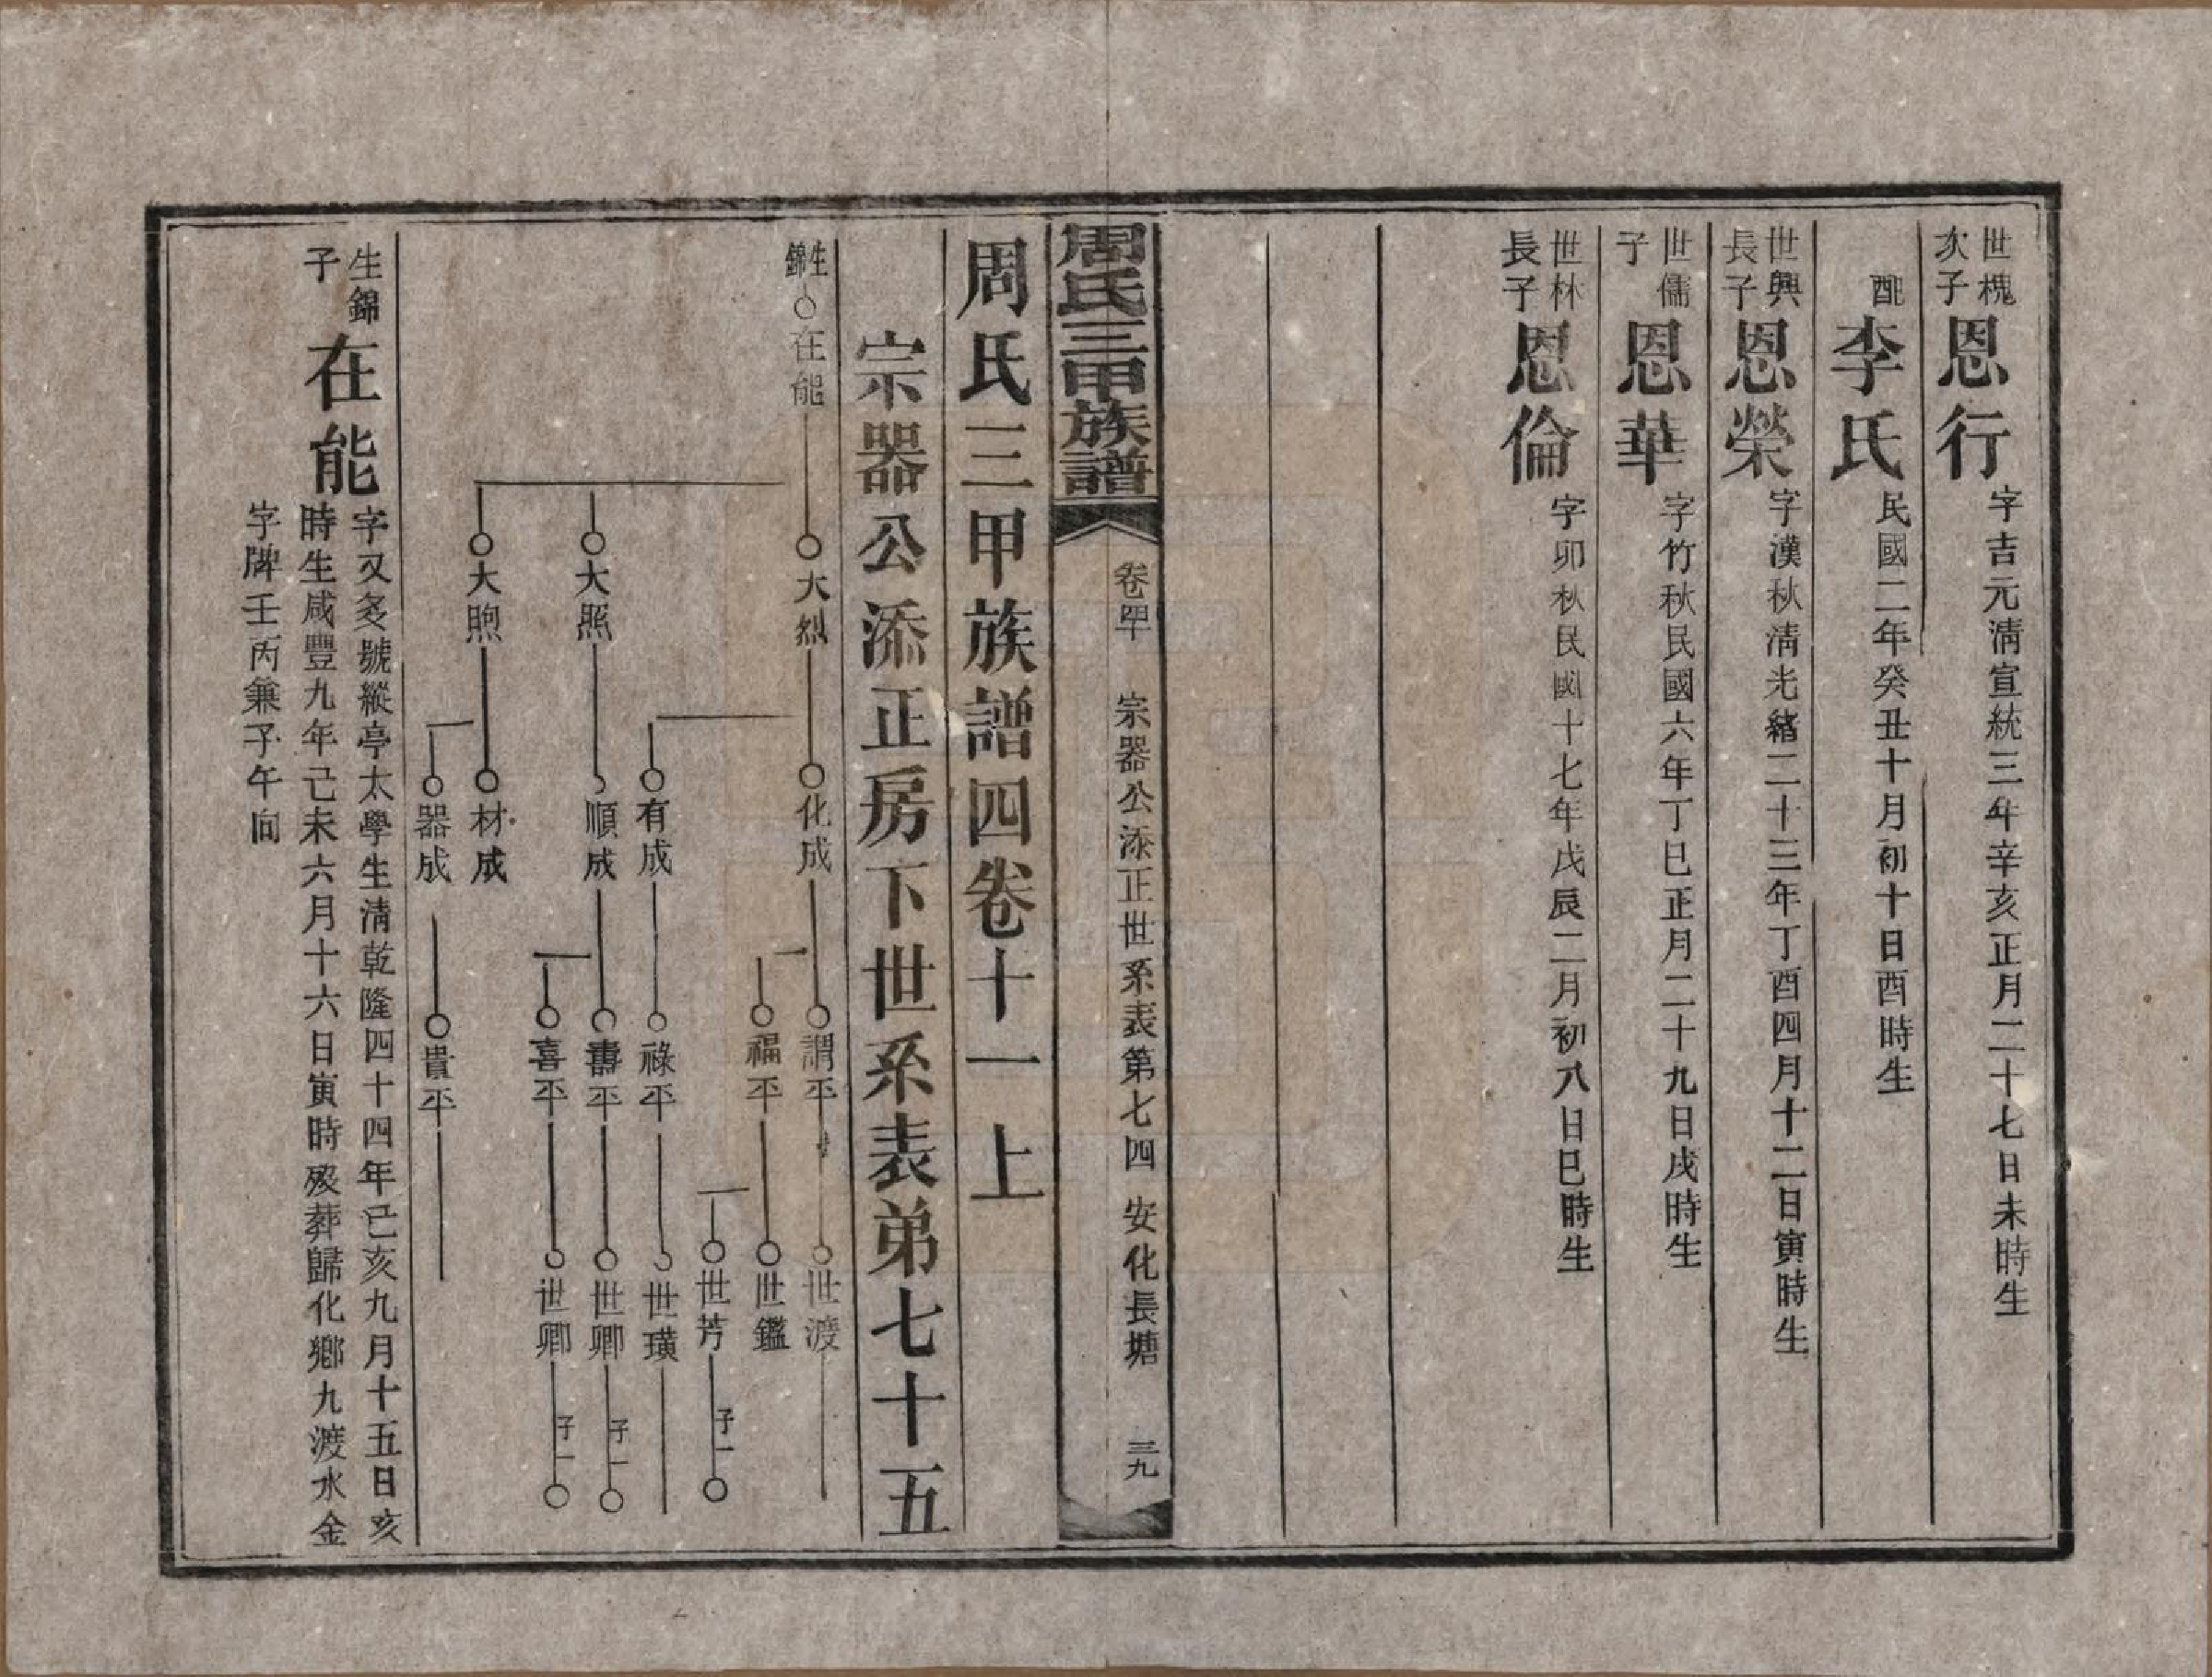 世槐次子恩行字吉元淸宣統三年辛亥正月二十七日未時生
配李氏民國二年癸丑十月初十日酉時生
世興長子恩榮字漢秋淸光緒二十三年丁酉四月十二日寅時生
世儒子恩華字竹秋民國六年丁巳正月二十九日戌時生
世林長子恩倫字卯秋民國十七年戊辰二月初八日巳時生
周氏三甲族譜 卷四十 宗器公添正世系表第七四 安化長塘 三九
周氏三甲族譜四卷十一上
宗器公添正房下世系表弟七十五
生錦 在能 大烈 化成 謂平 世渡
福平 世鑑
世芳 子一
有成 祿平 世璜
大照 順成 壽平 世卿 子一
喜平 世卿 子一
大煦 材成
器成 貴平
生錦子在能字又多號縱亭太學生淸乾隆四十四年己亥九月十五日亥
時生咸豐九年己未六月十六日寅時歿葬歸化鄉九渡水金
字牌壬丙兼子午向